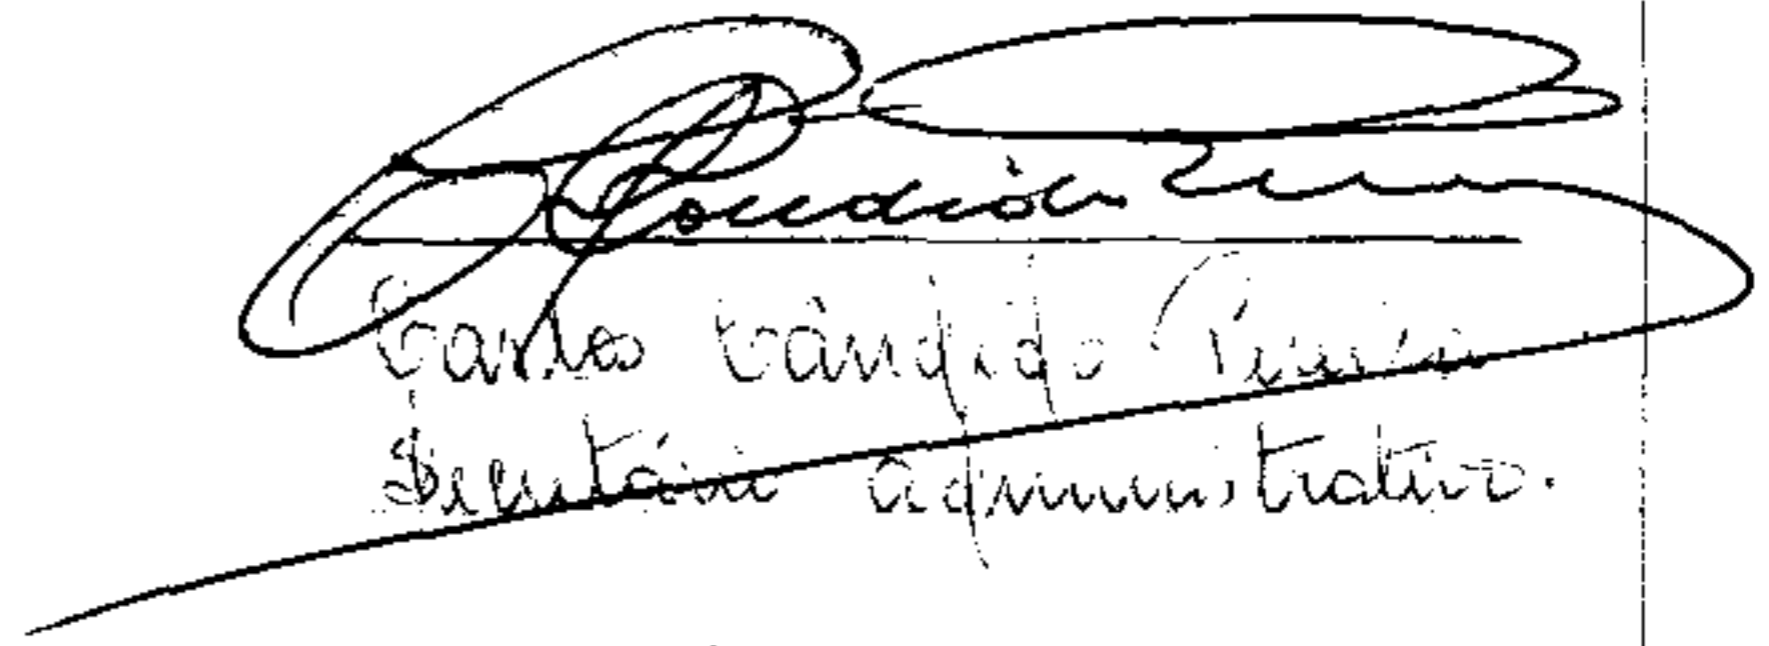 Carlos Cândido Pereira
Secretário administrativo.